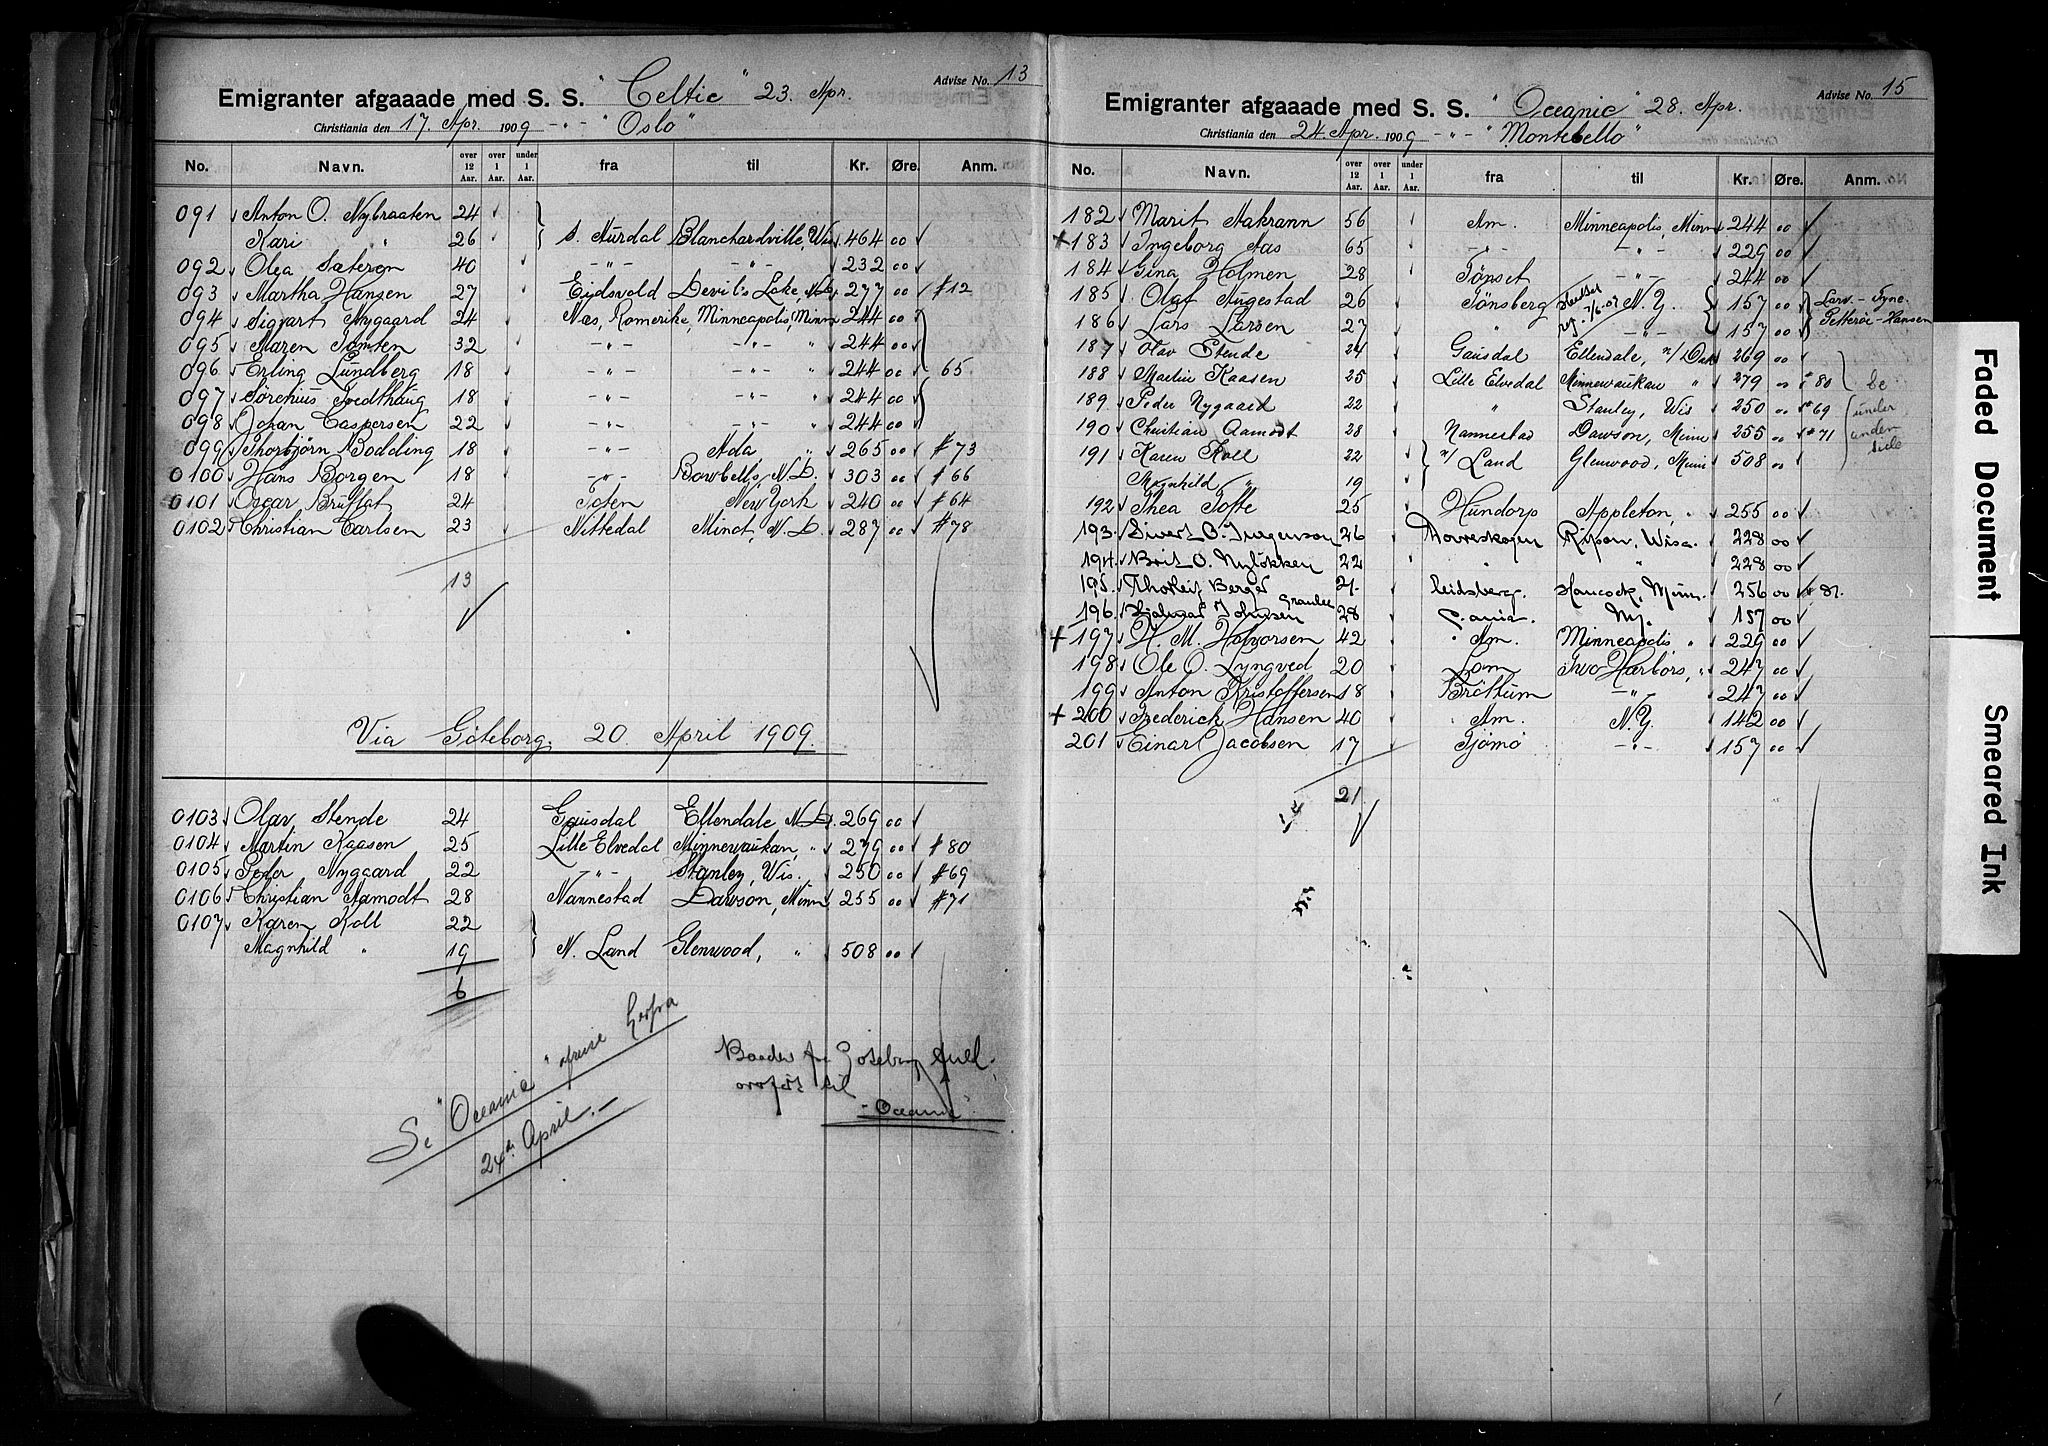 Advise No. 13
Emigranter afgaaade med S. S. "Celtic" 23. Apr.
Christiania den 17. Apr. 1909 -„- "Oslo"
No. Navn. over 12 Aar. over 1 Aar. under 1 Aar. fra til Kr. Øre. Anm.
091 Anton O. Nybraaten 24
Kari " 26 S. Aurdal Blanchardville, Wis 464 00
092 Olea Sæteren 40 -„- -„- 232 00
093 Martha Hansen 27 Eidsvold Devils Lake, N.D. 277 00 #12
094 Sigvart Nygaard 24 Næs, Romerike, Minneapolis, Minn 244 00
095 Maren Tomten 32 -„- -„- " 244 00
096 Erling Lundberg 18 -„- -„- " 244 00 65
097 Sørenius Tvedthaug 18 -„- -„- " 244 00
098 Johan Caspersen 22 -„- -„- " 244 00
099 Thorbjørn Bodding 18 -„- Ada, " 265 00 #73
0100 Hans Borgen 18 -„- Bowbells, N.D. 303 00 #66
0101 Oscar Brustat 24 Toten New York 240 00 #64
0102 Christian Carlsen 23 Nittedal Minot, N.D. 287 00 #78
13
Via Göteborg 20 April 1909.
0103 Olav Stende 24 Gausdal Ellendale N.D. 269 00
0104 Martin Kaasen 25 Lille Elvedal Minnewaukan, " 279 00 #80
0105 Peder Nygaard 22 -„- Stanley, Wis. 250 00 #69
0106 Christian Aamodt 28 Nannestad Dawson, Minn 255 00 #71
0107 Karen Koll 22
Magnhild " 19 N. Land Glenwood, " 508 00
6
Se "Oceanic" afreise herfra
24de April.-
Göteborg
overført til
"Oceanic"
Advise No. 15
Emigranter afgaaade med S. S. "Oceanic" 28. Apr.
Christiania den 24. Apr. 1909 -„- "Montebello"
No. Navn. over 12 Aar. over 1 Aar. under 1 Aar. fra til Kr. Øre. Anm.
182 Marit Aakrann 56 Am. Minneapolis, Minn 244 00
+ 183 Ingeborg Aas 65 -„- -„- 229 00
184 Gina Holmen 28 Tönset -„- 244 00
185 Olaf Augestad 26 Tönsberg N.Y. 157 00 Larv. - Tyne.
186 Lars Larsen 27 " -„- 157 00 Petterøe-Hansen
187 Olav Stende 24 Gausdal Ellendale, N/Dak 269 00
188 Martin Kaasen 25 Lille Elvedal Minnewaukan " 279 00 #80
189 Peder Nygaard 22 " Stanley, Wis 250 00 #69
190 Christian Aamodt 28 Nannestad Dawson, Minn 255 00 #71
191 Karen Koll 22 N/ Land Glenwood, Minn 508 00
Magnhild " 19
192 Thea Tofte 25 Hundorp Appleton, " 255 00
193. Sivert O. Jurgenson 26 Dovreskogen Ripon, Wisc. 228 00
194. Brit O. Nylökken 22 " " 228 00
195. Thorleif Berger 21. Eidsberg. Hancock, Minn. 256 00 # 81.
196. Hjalmar Johnsen 28 NY. 157 00
+ 197 H. M. Halvorsen 42 Am. Minneapolis, " 229 00
198 Ole O. Lyngved 20 Lom Two Harbors, " 247 00
199 Anton Kristoffersen 18 Bröttum -„- 247 00
+ 200 Frederick Hansen 40 Am. N.Y. 142 00
201 Einar Jacobsen 17 Tjömö -„- 157 00
21
Faded Document
Smeared Ink